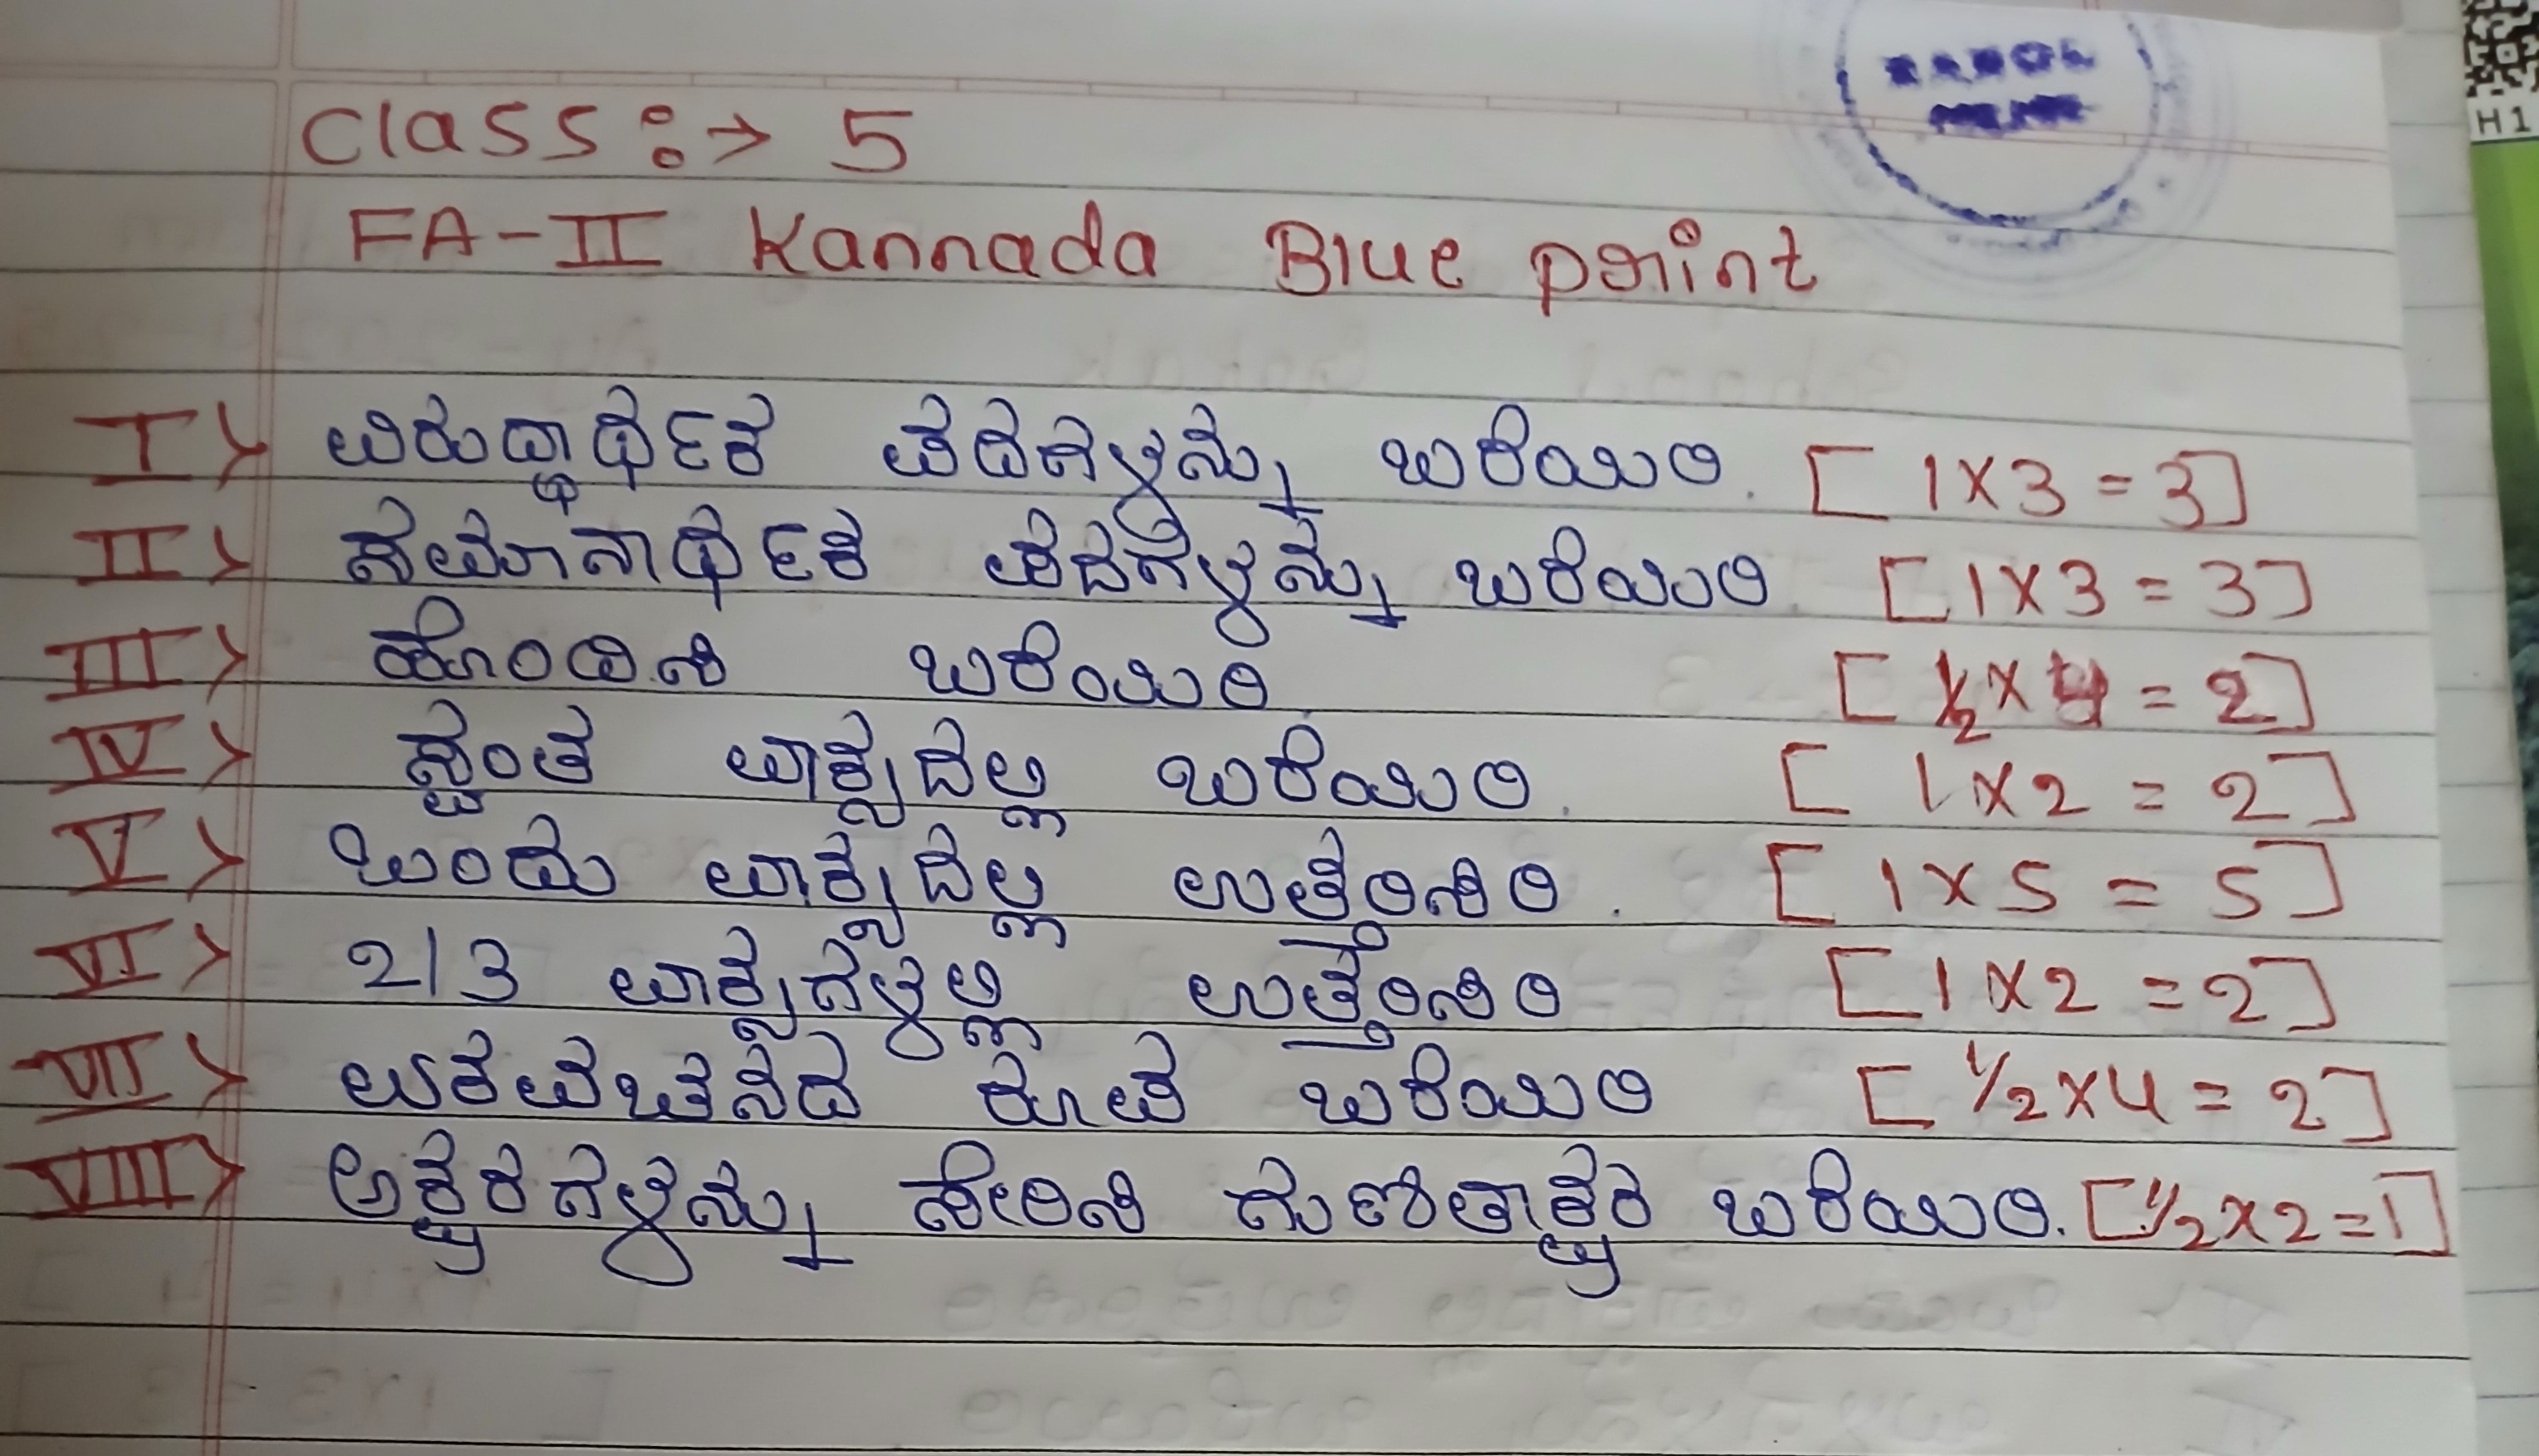 Class :→ 5
FA-II Kannada Blue print
I> ವಿರುದ್ಧಾರ್ಥಕ ಪದಗಳನ್ನು ಬರೆಯಿರಿ. [1×3=3]
II> ಸಮಾನಾರ್ಥಕ ಪದಗಳನ್ನು ಬರೆಯಿರಿ. [1×3=3]
III> ಹೊಂದಿಸಿ ಬರೆಯಿರಿ. [1/2×4=2]
IV> ಸ್ವಂತ ವಾಕ್ಯದಲ್ಲಿ ಬರೆಯಿರಿ. [1×2=2]
V> ಒಂದು ವಾಕ್ಯದಲ್ಲಿ ಉತ್ತರಿಸಿರಿ. [1×5=5]
VI> 2/3 ವಾಕ್ಯಗಳಲ್ಲಿ ಉತ್ತರಿಸಿರಿ [1×2=2]
VII> ಏಕವಚನದ ರೂಪ ಬರೆಯಿರಿ [1/2×4=2]
VIII> ಅಕ್ಷರಗಳನ್ನು ಸೇರಿಸಿ ಗುಣಿತಾಕ್ಷರ ಬರೆಯಿರಿ. [1/2×2=1]
H1